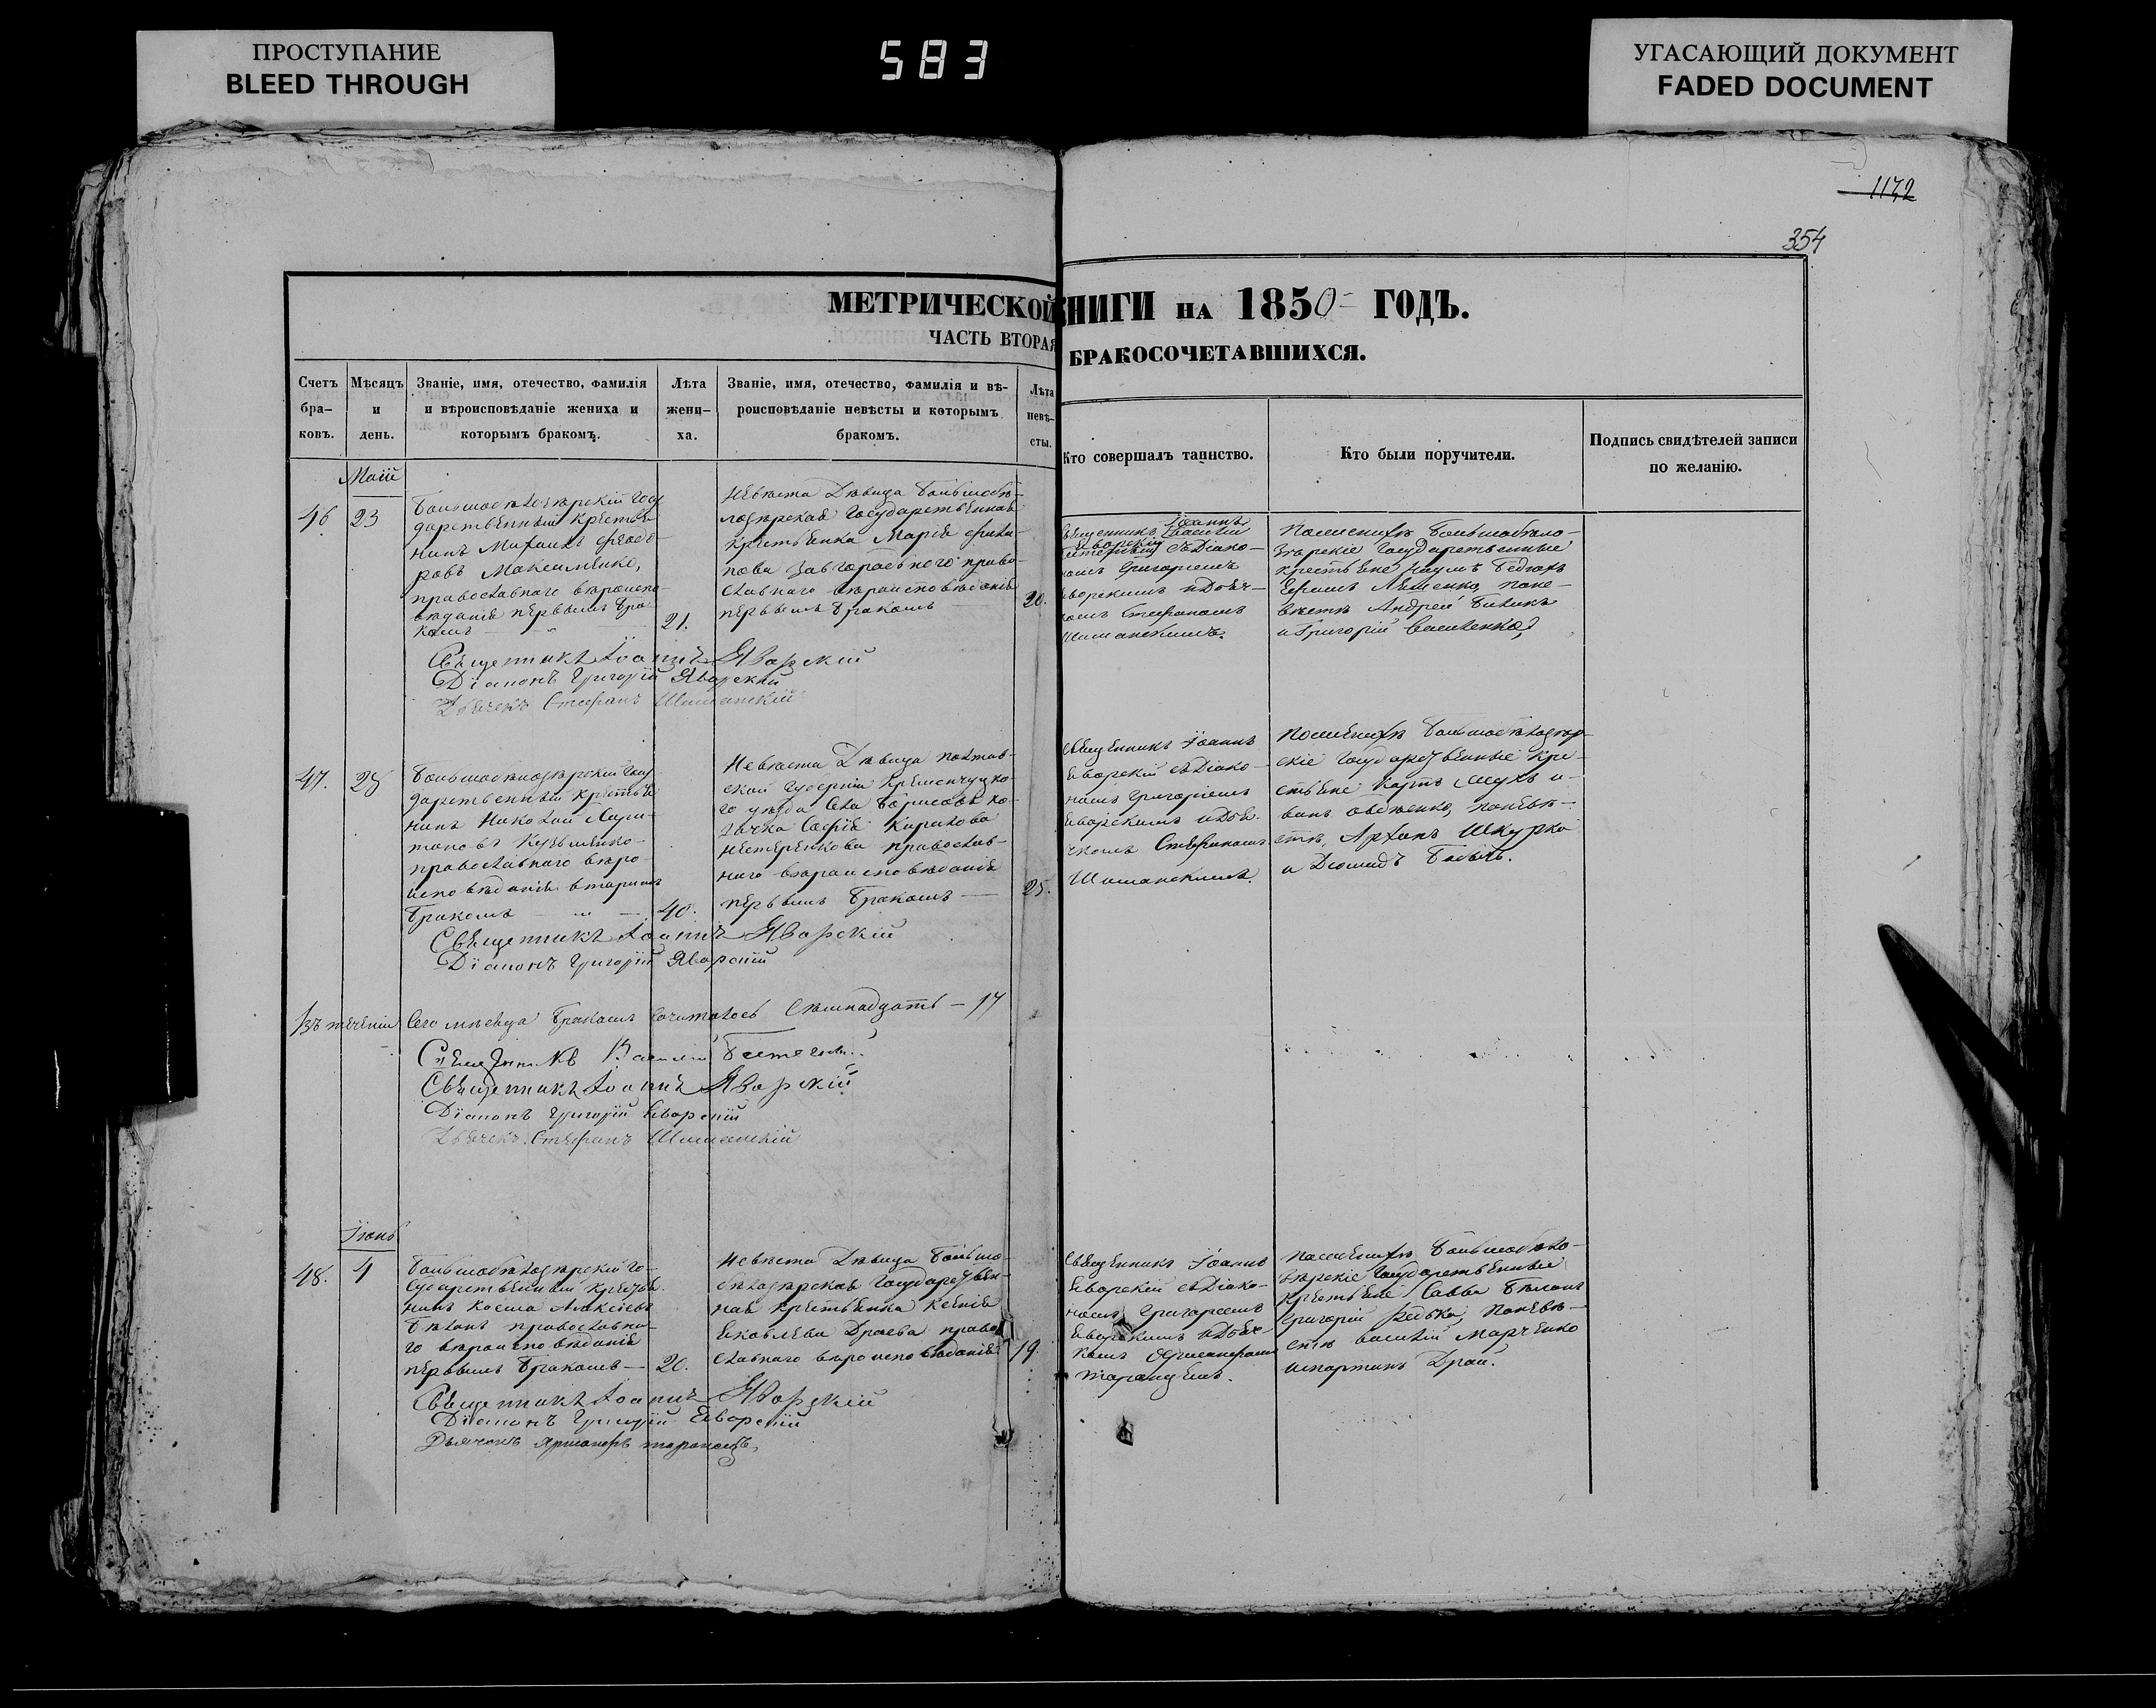 ПРОСТУПАНИЕ
BLEED THROUGH
583
УГАСАЮЩИЙ ДОКУМЕНТ
FADED DOCUMENT
1172
354
МЕТРИЧЕСКОЙ КНИГИ НА 1850 ГОДЪ.
ЧАСТЬ ВТОРАЯ БРАКОСОЧЕТАВШИХСЯ.
Счетъ
бра-
ковъ.
Мѣсяцъ
и
день.
Званіе, имя, отечество, фамилія
и вѣроисповѣданіе жениха и
которымъ бракомъ.
Лѣта
жени-
ха.
Званіе, имя, отечество, фамилія и вѣ-
роисповѣданіе невѣсты и которымъ
бракомъ.
Лѣта
невѣ-
сты.
Кто совершалъ таинство.
Кто были поручители.
Подпись свидѣтелей записи
по желанію.
Маій
46 23
Большебѣлозѣрскій Госу
дарственный крестья
нинъ Михаилъ Феодо-
ровъ Максименко,
православнаго вѣроиспо-
вѣданія первымъ бра-
комъ
21.
Невѣста Дѣвица Большебѣ-
лозѣрская Государственная
крестьянка Марія Фили-
пова право-
славнаго вѣроисповѣданія
первымъ бракомъ
20.
Священникъ Іоаннъ
Яворскій съ Діако-
номъ Григоріемъ
Яворскимъ и Дьяч-
комъ Стефаномъ
Шиманскимъ.
По женихѣ Большебѣло-
зѣрскіе Государственные
крестьяне Наумъ
Ефимъ Ляшенко, поне-
вѣстѣ Андрей
и Григорій Василенко,
Священникъ Іоаннъ Яворскій
Діаконъ Григорій Яворскій
Дьячекъ Стефанъ Шиманскій
47. 28
Большебѣлозѣрскій Госу
дарственный крестья
нинъ Николай Хари-
тоновъ Кузьменко
православнаго вѣро-
исповѣданія вторымъ
бракомъ
40.
Невѣста Дѣвица Полтав-
ской губерніи Кременчугско-
го уѣзда Села Борисовъ ко-
зачка Софія Кирилова
Нестеренкова православ-
наго вѣроисповѣданія
первымъ бракомъ
25.
Священникъ Іоаннъ
Яворскій съ Діако-
номъ Григоріемъ
Яворскимъ и Дья-
чкомъ Стефаномъ
Шиманскимъ.
По женихѣ Большебѣлозѣр-
скіе Государственные кре-
стьяне Карпъ и
ванъ Овсѣенко, поневѣ-
стѣ, Архипъ Шкурко
и Діомидъ
Священникъ Іоаннъ Яворскій
Діаконъ Григорій Яворскій
Въ теченіи Сего мѣсяца бракомъ сочеталось Сѣмнадцать — 17
Священникъ Василій
Священникъ Іоаннъ Яворскій
Діаконъ Григорій Яворскій
Дьячекъ Стефанъ Шиманскій
Іюнь
48. 4
Большебѣлозѣрскій Го-
сударственный крестья
нинъ Косма Алексіевъ
Бѣланъ православна-
го вѣроисповѣданія
первымъ бракомъ —
20.
Невѣста Дѣвица Больше-
бѣлозѣрская Государствен-
ная крестьянка Ксенія
Яковлева Драева право
славнаго вѣроисповѣданія
19.
Священникъ Іоаннъ
Яворскій съ Діако-
номъ Григоріемъ
Яворскимъ и Дьяч-
комъ
По женихѣ Большебѣло-
зѣрскіе Государственные
крестьяне Савва Бѣланъ
Григорій Рѣдька, поневѣ-
стѣ Василій Марченко
имартинъ Драй.
Священникъ Іоаннъ Яворскій
Діаконъ Григорій Яворскій
Дьячокъ